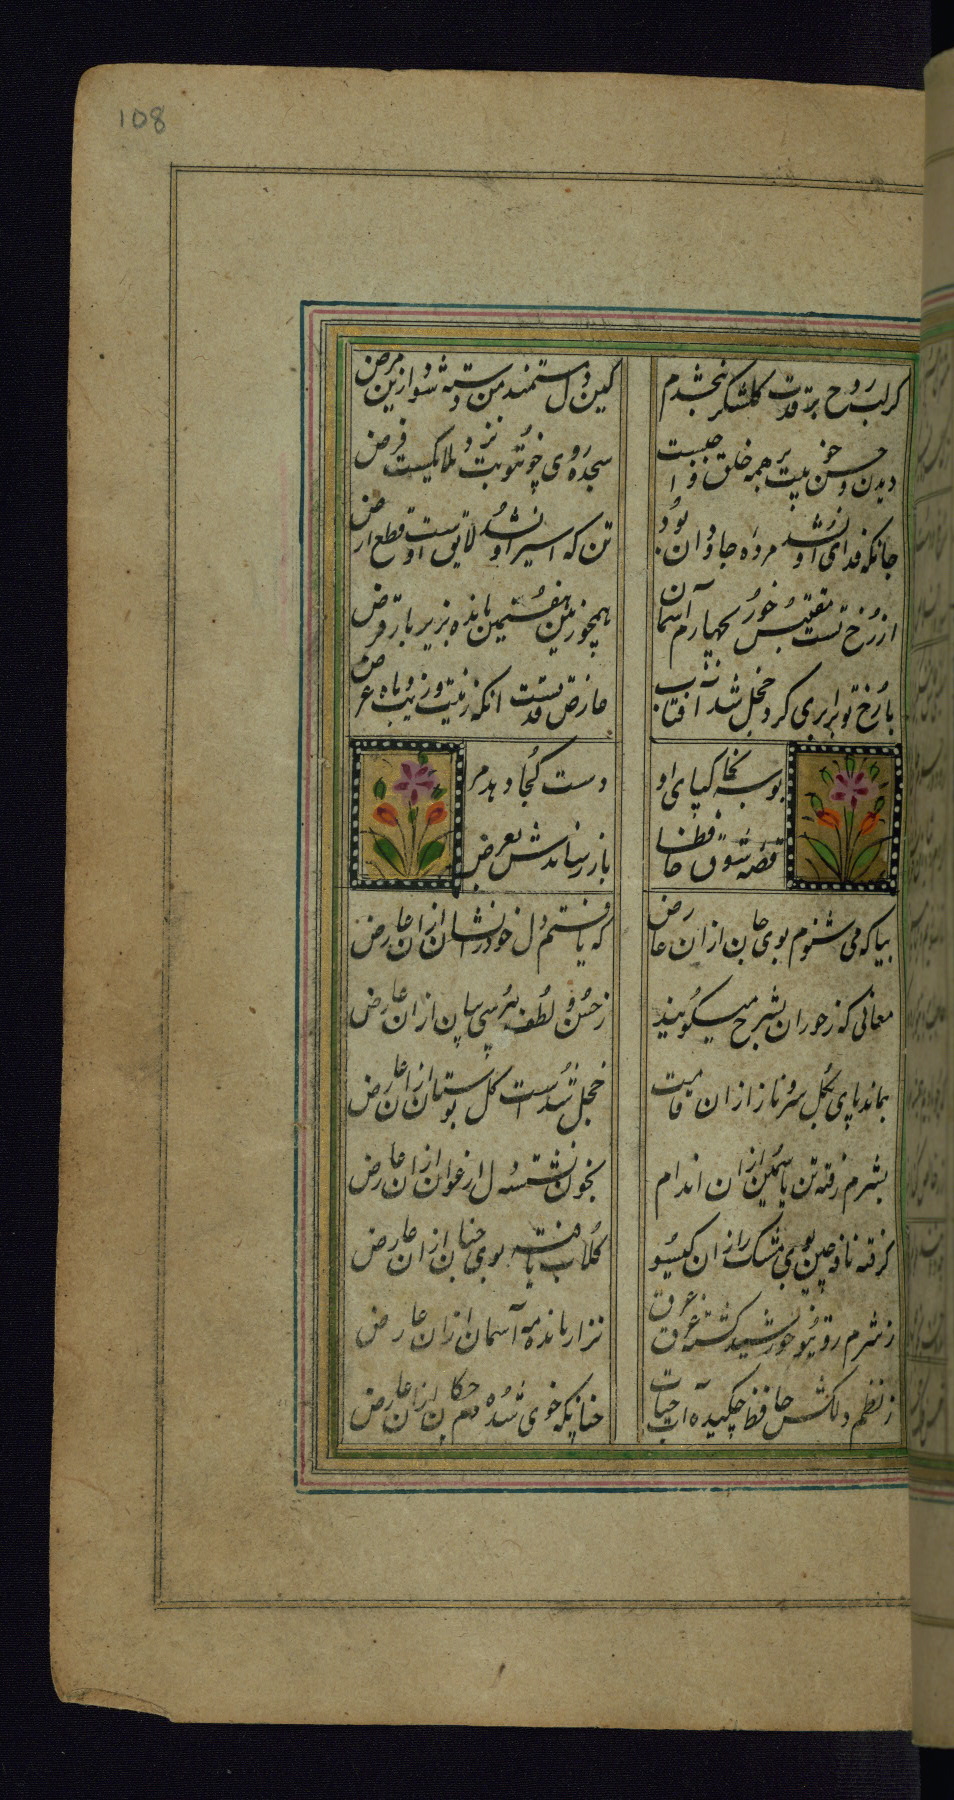 108
گر لب روح پرورت گلشکر نبخشدم
کین دل مستمند من رسته شود ازین مرض
دیدن حسن و خوبیت بر همه خلق واجبست
سجده روی خوب تو نزد ملایکست فرض
جانکه فدای او نشد مرده جاودان بود
تن که اسیر او نشد لایق اوست قطع ارض
از رخ تست مقتبس خور ز چهارم آسمان
همچو زمین هفتمین مانده بزیر بار قرض
با رخ تو برابری کرد و خجل شد آفتاب
عارض تست انکه زینت و زیب ماه عرض
بوسه بخاکپای او
دست کجا دهد مر
قصه شوق حافظا
باد رساندش بعرض
بیا که می شنوم بوی جان ازان عارض
که یافتم دل خود را نشان ازان عارض
معانی که ز حوران بشرح میگویند
ز حسن و لطف بپرسی بیان ازان عارض
بماند پای بگل سرو ناز ازان قامت
خجل شدست گل بوستان ازان عارض
بشرم رفته تن یاسمین ازان اندام
بخون نشسته دل ارغوان ازان عارض
گرفته نافه چین بوی مشک ازان گیسو
گلاب یافته بوی جنان ازان عارض
ز شرم روی تو خورشید گشته غرق عرق
نزار مانده مه آسمان ازان عارض
ز نظم دلکش حافظ چکیده آب حیات
چنانکه خوی شده جان چکان ازان عارض